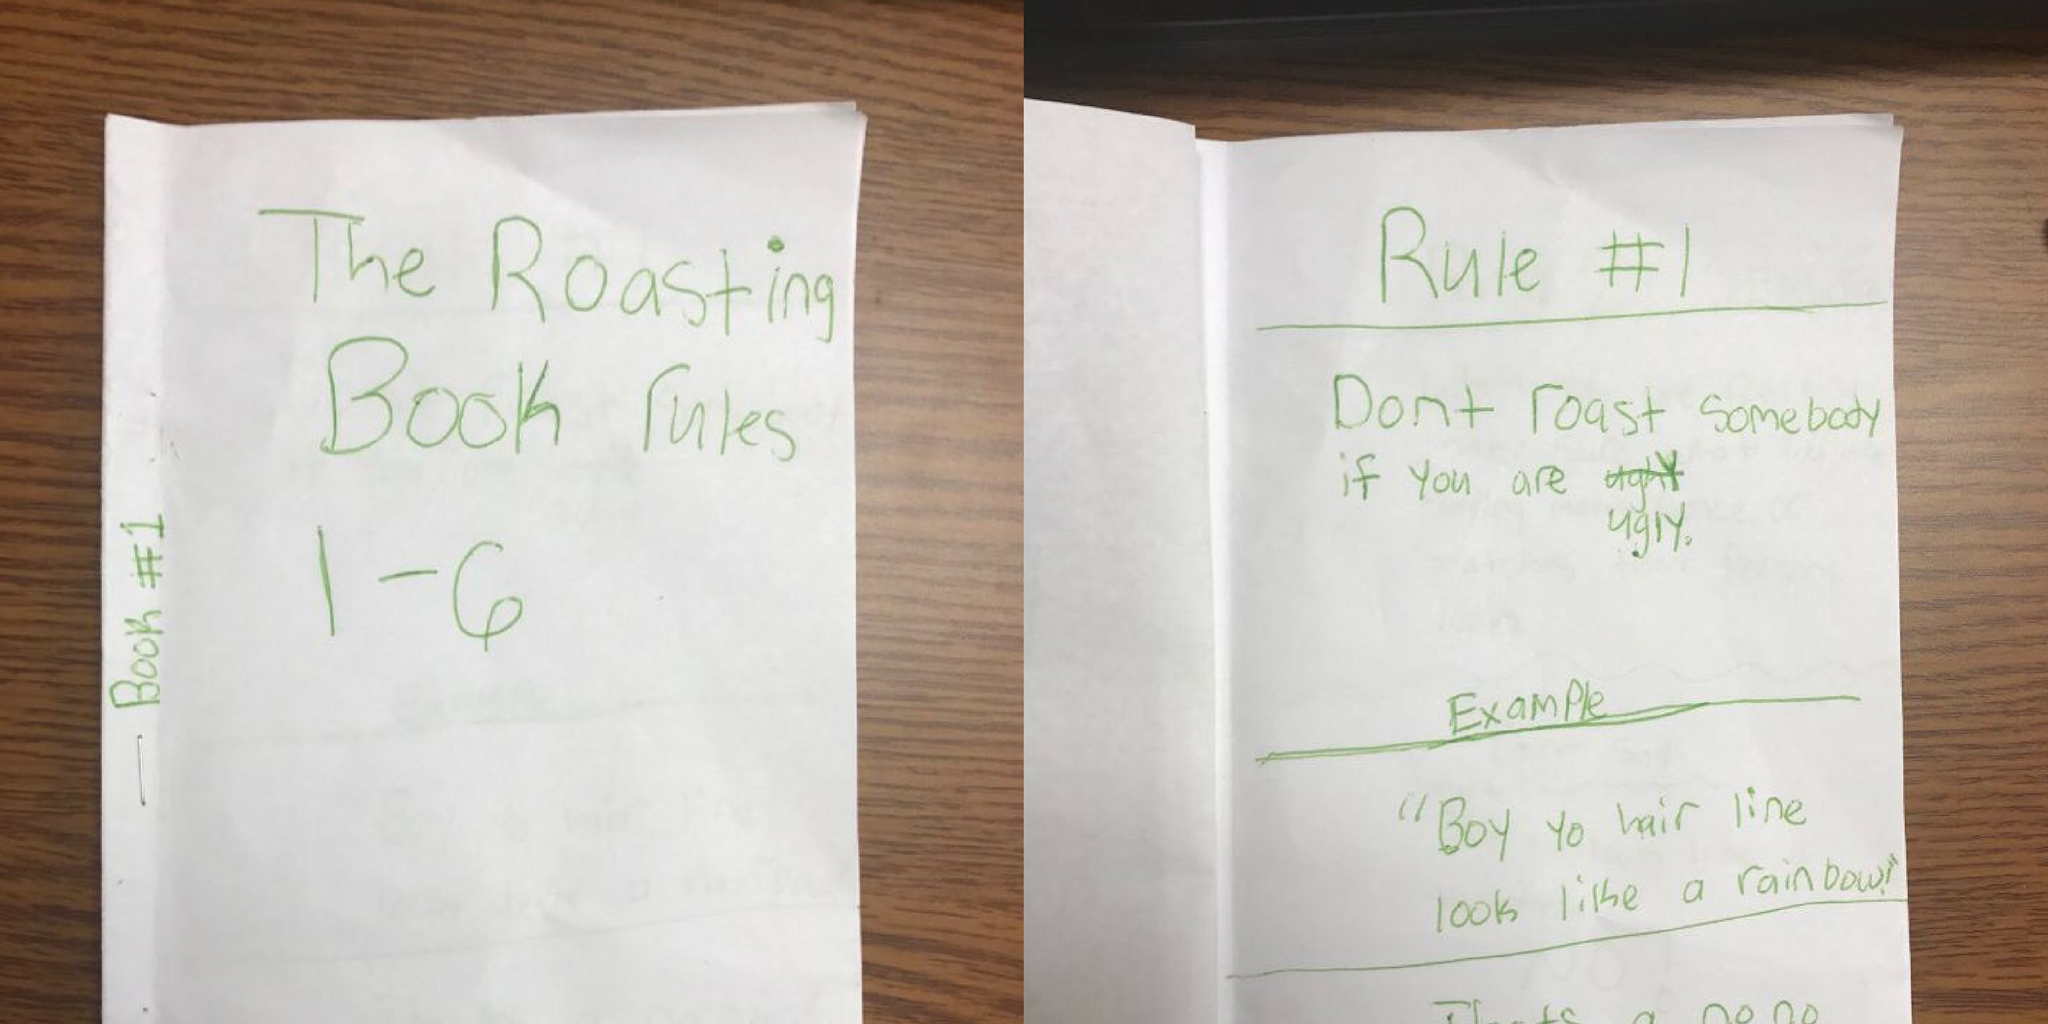 The Roasting
Book rules
1-6
Book #1
Rule #1
Dont roast somebody
if you are ugly
ugly.
Example
"Boy yo hair line
look like a rainbow!"
Thats a no no